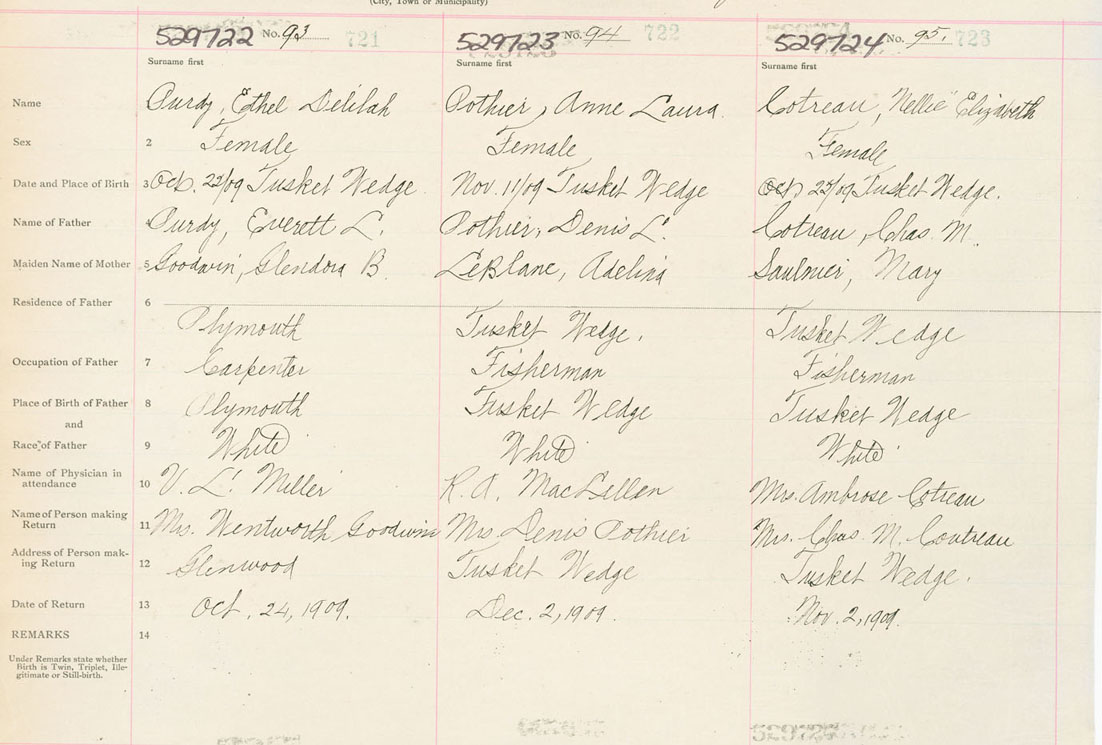 (City, Town or Municipality)
529722 No. 93 721 529723 No. 94 722 529724 No. 95. 723
Surname first Surname first Surname first
Name Purdy, Ethel Delilah Pothier, Anne Laura Cotreau, Nellie Elizabeth
Sex 2 Female Female Female
Date and Place of Birth 3 Oct. /09 Tusket Wedge Nov. 11/09 Tusket Wedge Oct. /09 Tusket Wedge.
Name of Father 4 Purdy, Everett L. Pothier, Denis L. Cotreau, Chas. M.
Maiden Name of Mother 5 Goodwin, Glendora B. LeBlanc, Adelina Saulnier, Mary
Residence of Father 6
Plymouth Tusket Wedge. Tusket Wedge
Occupation of Father 7 Carpenter Fisherman Fisherman
Place of Birth of Father 8 Plymouth Tusket Wedge Tusket Wedge
and
Race of Father 9 White White White
Name of Physician in
attendance 10 V. L. Miller R. A. MacLellan Mrs. Ambrose Cotreau
Name of Person making
Return 11 Mrs. Wentworth Goodwin Mrs. Denis Pothier Mrs. Chas. M. Coutreau
Address of Person mak-
ing Return 12 Glenwood Tusket Wedge Tusket Wedge.
Date of Return 13 Oct. 24, 1909. Dec. 2, 1909. Nov. 2, 1909.
REMARKS 14
Under Remarks state whether
Birth is Twin, Triplet, Ille-
gitimate or Still-birth.